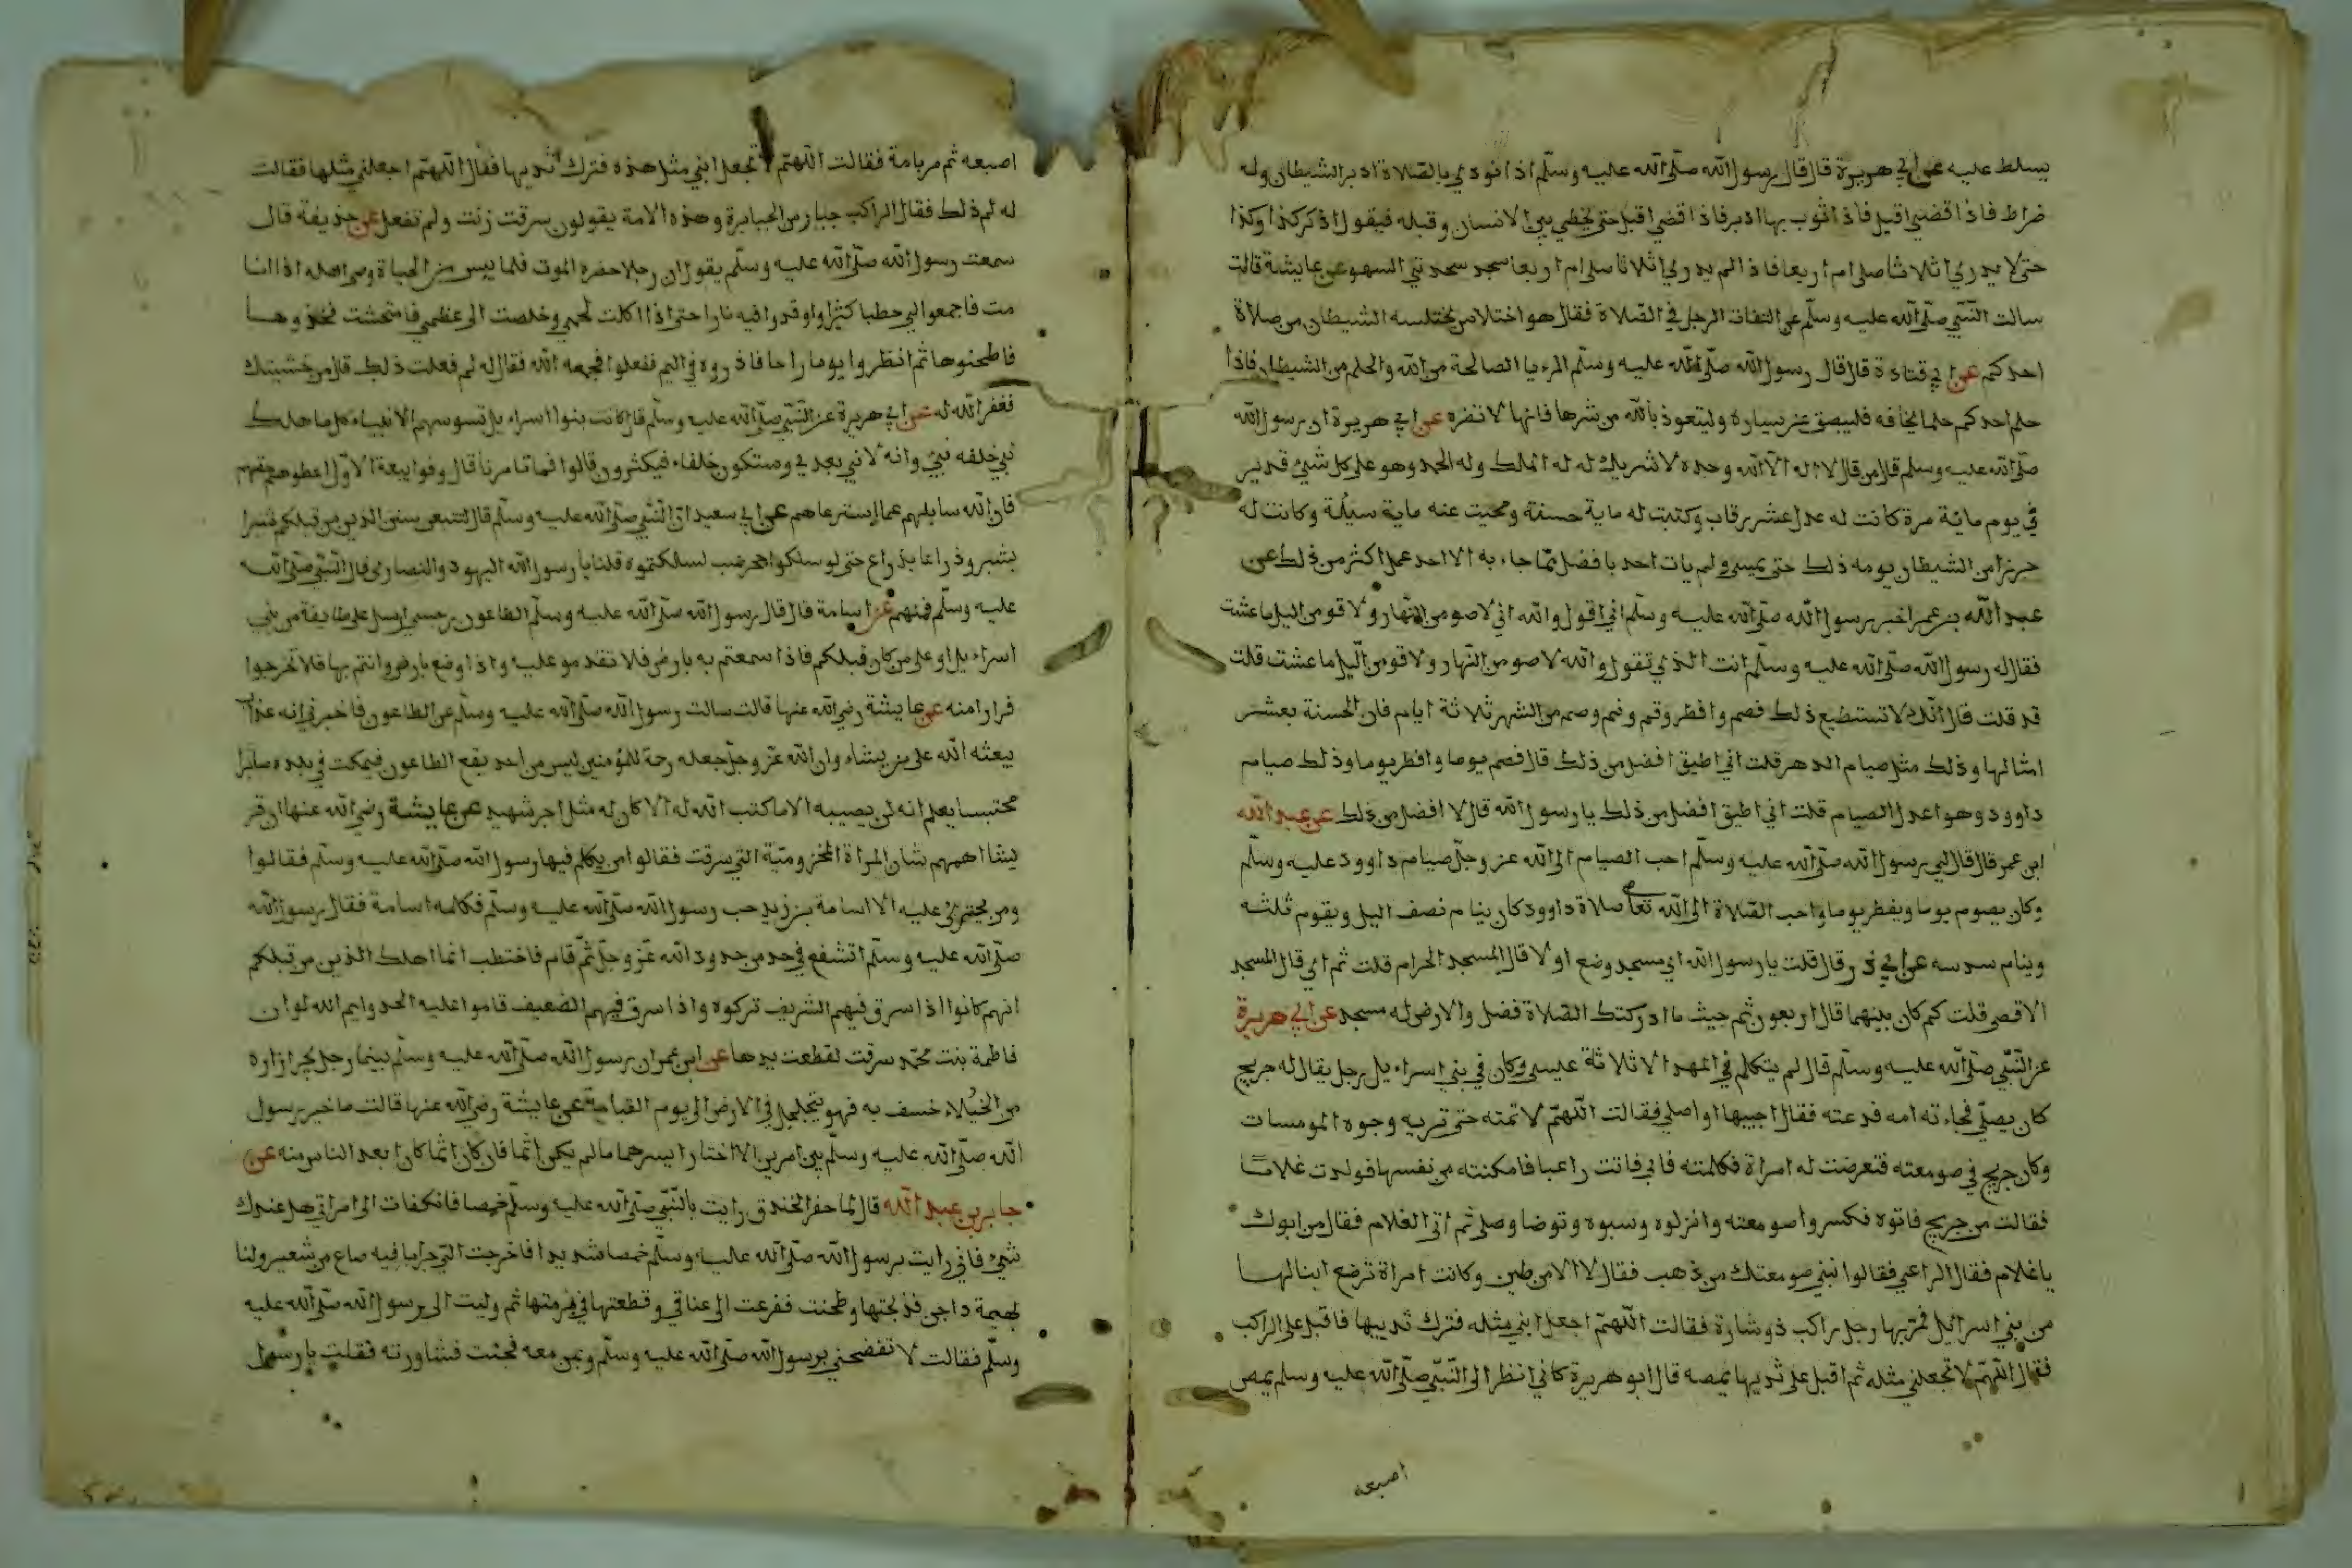 يسلط عليه عن ابي هريرة قال قال رسول الله صلى الله عليه وسلم اذا نودي بالصلاة ادبر الشيطان وله
ضراط فاذا قضي اقبل فاذا ثوب بها ادبر فاذا قضي اقبل حتى يخطي بين الانسان وقبله فيقول اذكر كذا وكذا
حتى لا يدري اثلاثا صلى ام اربعا فاذا لم يدري اثلاثا صلى ام اربعا سجد سجدتي السهو عن عايشة قالت
سالت النبي صلى الله عليه وسلم عن التفات الرجل في الصلاة فقال هو اختلاس يختلسه الشيطان من صلاة
احدكم عن ابي قتادة قال قال رسول الله صلى الله عليه وسلم الرءيا الصالحة من الله والحلم من الشيطان فاذا
حلم احدكم حلما يخافه فليبصق عن يساره وليتعوذ بالله من شرها فانها لا تضره عن ابي هريرة ان رسول الله
صلى الله عليه وسلم قال من قال لا اله الا الله وحده لا شريك له له الملك وله الحمد وهو على كل شيئ قدير
في يوم مائة مرة كانت له عدل عشر رقاب وكتبت له ماية حسنة ومحيت عنه ماية سيئة وكانت له
حرزا من الشيطان يومه ذلك حتى يمسي ولم يات احد بافضل مما جاء به الا احد عمل اكثر من ذلك عن
عبد الله بن عمر اخبر رسول الله صلى الله عليه وسلم اني اقول والله اني لاصومن النهار ولاقومن اليل ما عشت
فقال له رسول الله صلى الله عليه وسلم انت الذي تقول والله لاصومن النهار ولاقومن اليل ما عشت قلت
قد قلت قال انك لا تستطيع ذلك فصم وافطر وقم ونم وصم من الشهر ثلاثة ايام فان الحسنة بعشر
امثالها وذلك مثل صيام الدهر قلت اني اطيق افضل من ذلك قال فصم يوما وافطر يوما وذلك صيام
داوود وهو اعدل الصيام قلت اني اطيق افضل من ذلك يا رسول الله قال لا افضل من ذلك عن عبد الله
ابن عمر قال قال لي رسول الله صلى الله عليه وسلم احب الصيام الى الله عز وجل صيام داوود عليه وسلم
وكان يصوم يوما ويفطر يوما واحب الصلاة الى الله تعا صلاة داوود كان ينام نصف اليل ويقوم ثلثه
وينام سدسه عن ابي ذر قال قلت يا رسول الله اي مسجد وضع اولا قال المسجد الحرام قلت ثم اي قال المسجد
الاقصى قلت كم كان بينهما قال اربعون ثم حيث ما ادركتك الصلاة فصل والارض له مسجد عن ابي هريرة
عن النبي صلى الله عليه وسلم قال لم يتكلم في المهد الا ثلاثة عيسى وكان في بني اسراءيل رجل يقال له جريج
كان يصلي فجاءته امه فدعته فقال اجيبها او اصلي فقالت اللهم لا تمته حتى تريه وجوه المومسات
وكان جريج في صومعته فتعرضت له امراة فكلمته فابى فاتت راعيا فامكنته من نفسها فولدت غلاما
فقالت من جريج فاتوه فكسروا صومعته وانزلوه وسبوه وتوضا وصلى ثم اتى الغلام فقال من ابوك
يا غلام فقال الراعي فقالوا نبني صومعتك من ذهب فقال لا الا من طين وكانت امراة ترضع ابنا لها
من بني اسرائيل فمر بها رجل راكب ذو شارة فقالت اللهم اجعل ابني مثله فترك ثديها فاقبل على الراكب
فقال اللهم لا تجعلني مثله ثم اقبل على ثديها يمصه قال ابو هريرة كاني انظر الى النبي صلى الله عليه وسلم يمص
اصبعه
اصبعه ثم مر بامة فقالت اللهم لا تجعل ابني مثل هذه فترك ثديها فقال اللهم اجعلني مثلها فقالت
له لم ذلك فقال الراكب جبار من الجبابرة وهذه الامة يقولون سرقت زنت ولم تفعل عن حذيفة قال
سمعت رسول الله صلى الله عليه وسلم يقول ان رجلا حضره الموت فلما ييس من الحياة وصى اهله اذا انا
مت فاجمعوا لي حطبا كثيرا واوقدوا فيه نارا حتى اذا اكلت لحمي وخلصت الى عظمي فامتحشت فخذوها
فاطحنوها ثم انظروا يوما راحا فاذروه في اليم ففعلوا فجمعه الله فقال له لم فعلت ذلك قال من خشيتك
فغفر الله له عن ابي هريرة عن النبي صلى الله عليه وسلم قال كانت بنوا اسراءيل تسوسهم الانبياء كل ما هلك
نبي خلفه نبي وانه لا نبي بعدي وستكون خلفاء فيكثرون قالوا فما تامرنا قال وفوا بيعة الاول اعطوهم حقهم
فان الله سايلهم عما استرعاهم عن ابي سعيد ان النبي صلى الله عليه وسلم قال لتتبعن سنن الذين من قبلكم شبرا
بشبر وذراعا بذراع حتى لو سلكوا حجر ضب لسلكتموه قلنا يا رسول الله اليهود والنصارى قال النبي صلى الله
عليه وسلم فمنهم عن اسامة قال قال رسول الله صلى الله عليه وسلم الطاعون رجس ارسل على طايفة من بني
اسراءيل او على من كان قبلكم فاذا سمعتم به بارض فلا تقدمو عليه واذا وضع بارض وانتم بها فلا تخرجوا
فرارا منه عن عايشة رضي الله عنها قالت سالت رسول الله صلى الله عليه وسلم عن الطاعون فاخبرني انه عذاب
يبعثه الله على من يشاء وان الله عز وجل جعله رحمة للمؤمنين ليس من احد يقع الطاعون فيمكث في بلده صابرا
محتسبا يعلم انه لن يصيبه الا ما كتب الله له الا كان له مثل اجر شهيد عن عايشة رضي الله عنها ان قر
يشا اهمهم شان المراة المخزومية التي سرقت فقالوا من يكلم فيها رسول الله صلى الله عليه وسلم فقالوا
ومن يجترئ عليه الا اسامة بن زيد حب رسول الله صلى الله عليه وسلم فكلمه اسامة فقال رسول الله
صلى الله عليه وسلم اتشفع في حد من حدود الله عز وجل ثم قام فاختطب انما اهلك الذين من قبلكم
انهم كانوا اذا سرق فيهم الشريف تركوه واذا سرق فيهم الضعيف قاموا عليه الحد وايم الله لو ان
فاطمة بنت محمد سرقت لقطعت يدها عن ابن عمر ان رسول الله صلى الله عليه وسلم بينما رجل يجر ازاره
من الخيلاء خسف به فهو يتجلجل في الارض الى يوم القيامة عن عايشة رضي الله عنها قالت ما خير رسول
الله صلى الله عليه وسلم بين امرين الا اختار ايسرهما ما لم يكن اثما فان كان اثما كان ابعد الناس منه عن
جابر بن عبد الله قال لما حفر الخندق رايت بالنبي صلى الله عليه وسلم خمصا فانكفات الى امراتي هل عندك
شيئ فاني رايت برسول الله صلى الله عليه وسلم خمصا شديدا فاخرجت الي جرابا فيه صاع من شعير ولنا
بهيمة داجن فذبحتها وطحنت ففرغت الى عناقي وقطعتها في برمتها ثم وليت الى رسول الله صلى الله عليه
وسلم فقالت لا تفضحني برسول الله صلى الله عليه وسلم وبمن معه فجئت فشاورته فقلت يا رسول